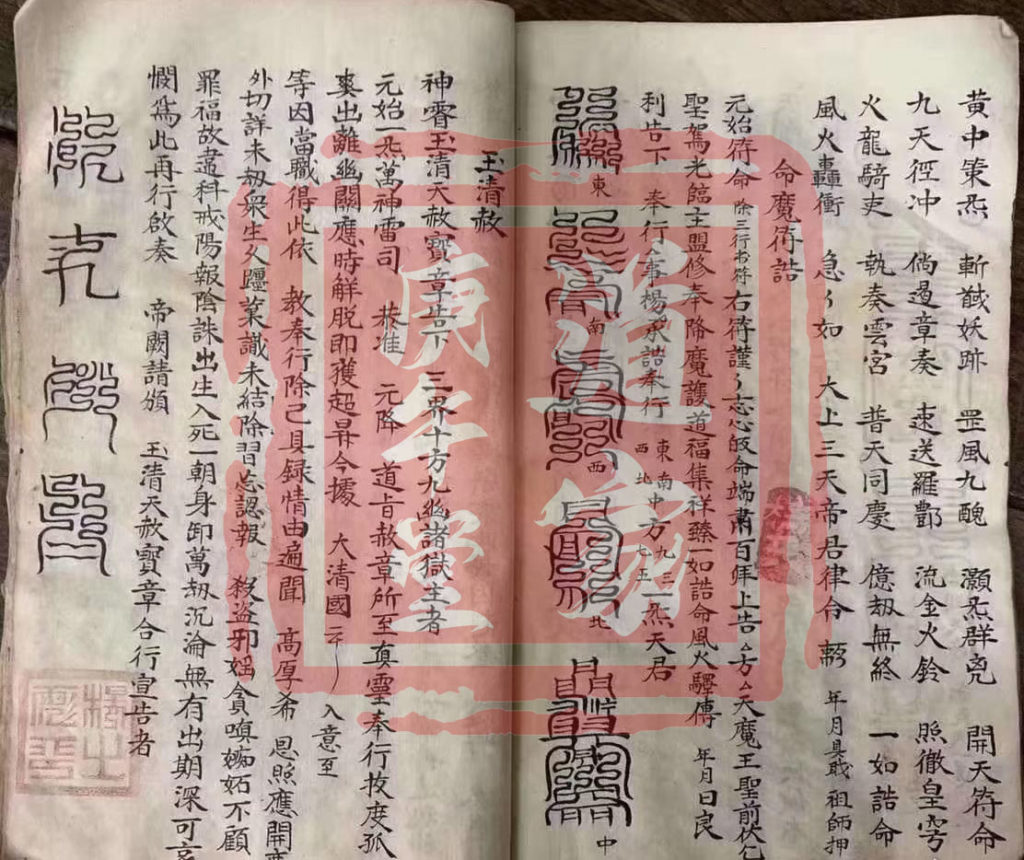 黄中策炁 斬馘妖跡 罡風九醜 灝炁群兇 開天符命
九天徑冲 倘邊章奏 速送羅酆 流金火鈴 照徹皇穹
火龍騎吏 執奏雲宮 普天同慶 億劫無終 一如誥命
風火轟衝 急〻如 大上三天帝君律令 年月具職 祖師押
命魔符誥
元始符命 除三行书符 右符謹〻志心皈命端肅百拜上告〻方〻天魔王聖前伏乞
聖駕光臨主盟修奉降魔護道福集祥臻一如誥命風火驛傳 年月日良
利告下 奉行事楊承誥奉行 東南中方九三一炁天君 西北 七五
東
南
西
北
中
玉清赦
神霄玉清天赦寶章告下 三界十方九幽諸獄主者
元始一炁萬神雷司 恭准 元降 道旨赦章所至真靈奉行拔度孤
爽出離幽關應時解脱即獲超昇今據 大清國 入意至
等因當職得此依 教奉行除已具録情由遍聞 高厚希 恩照應開
外切詳未劫衆生久躔業識未結除習忘認報 殺盗邪婬貪嗔嫉妬不顧
罪福故遭科戒陽報陰誅出生入死一朝身卸萬劫沉淪無有出期深可
憫爲此再行啟奏 帝闕請頒 玉清天赦寶章合行宣告者
道家
庚子堂